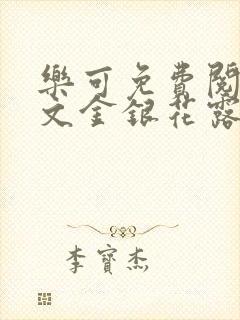 樂可免費閱
文金銀花露
李寶杰